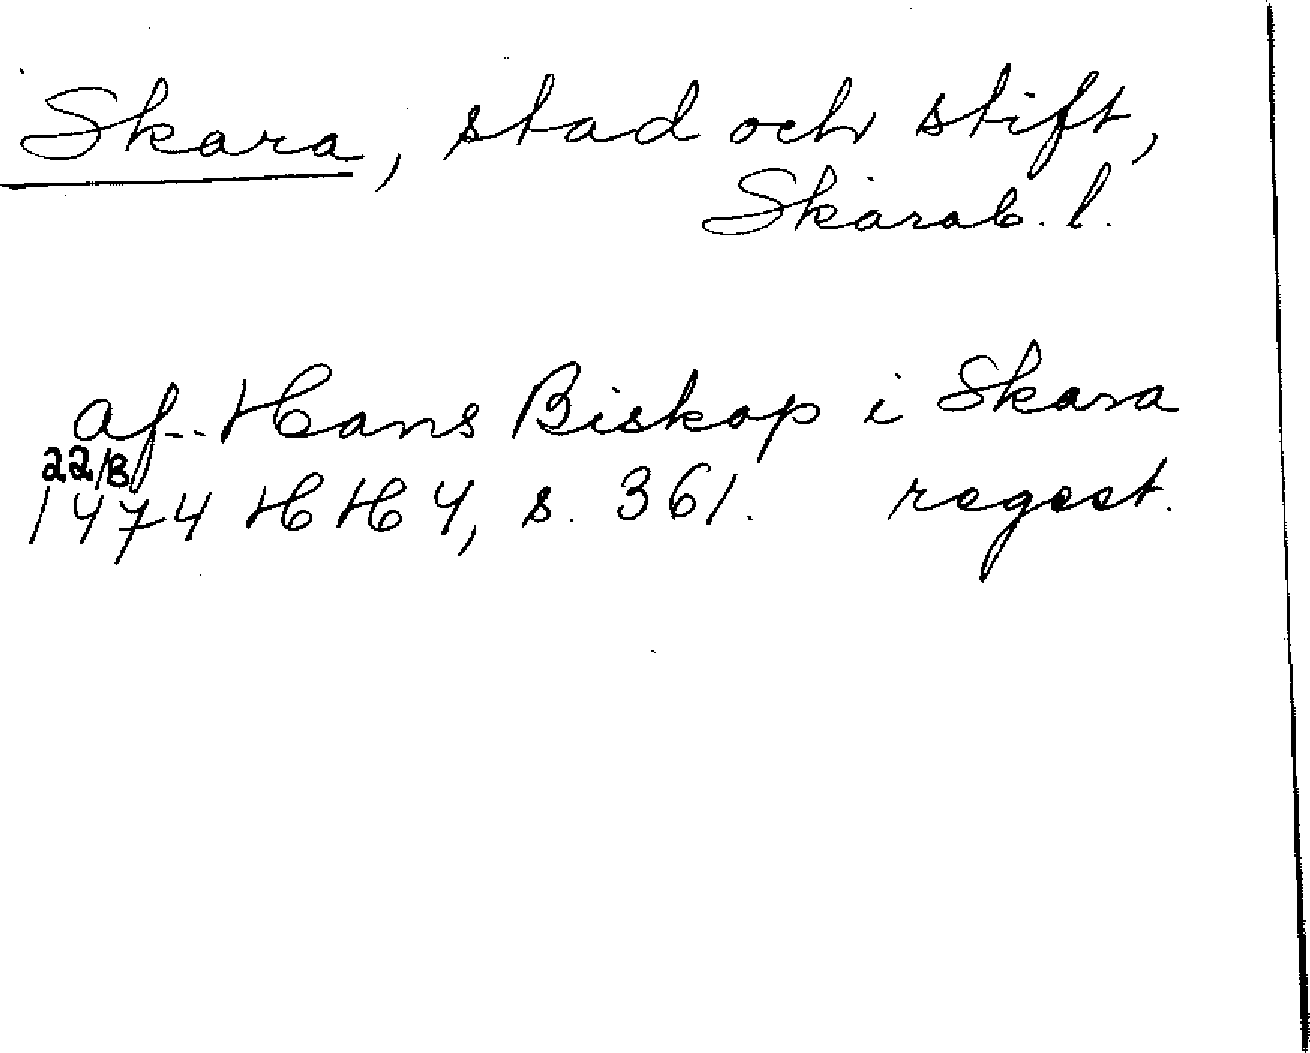 Skara, stad och stift,
Skarab. l.
af.. Hans Biskop i Skara
22/8
1474 HH 4, s. 361. regest.